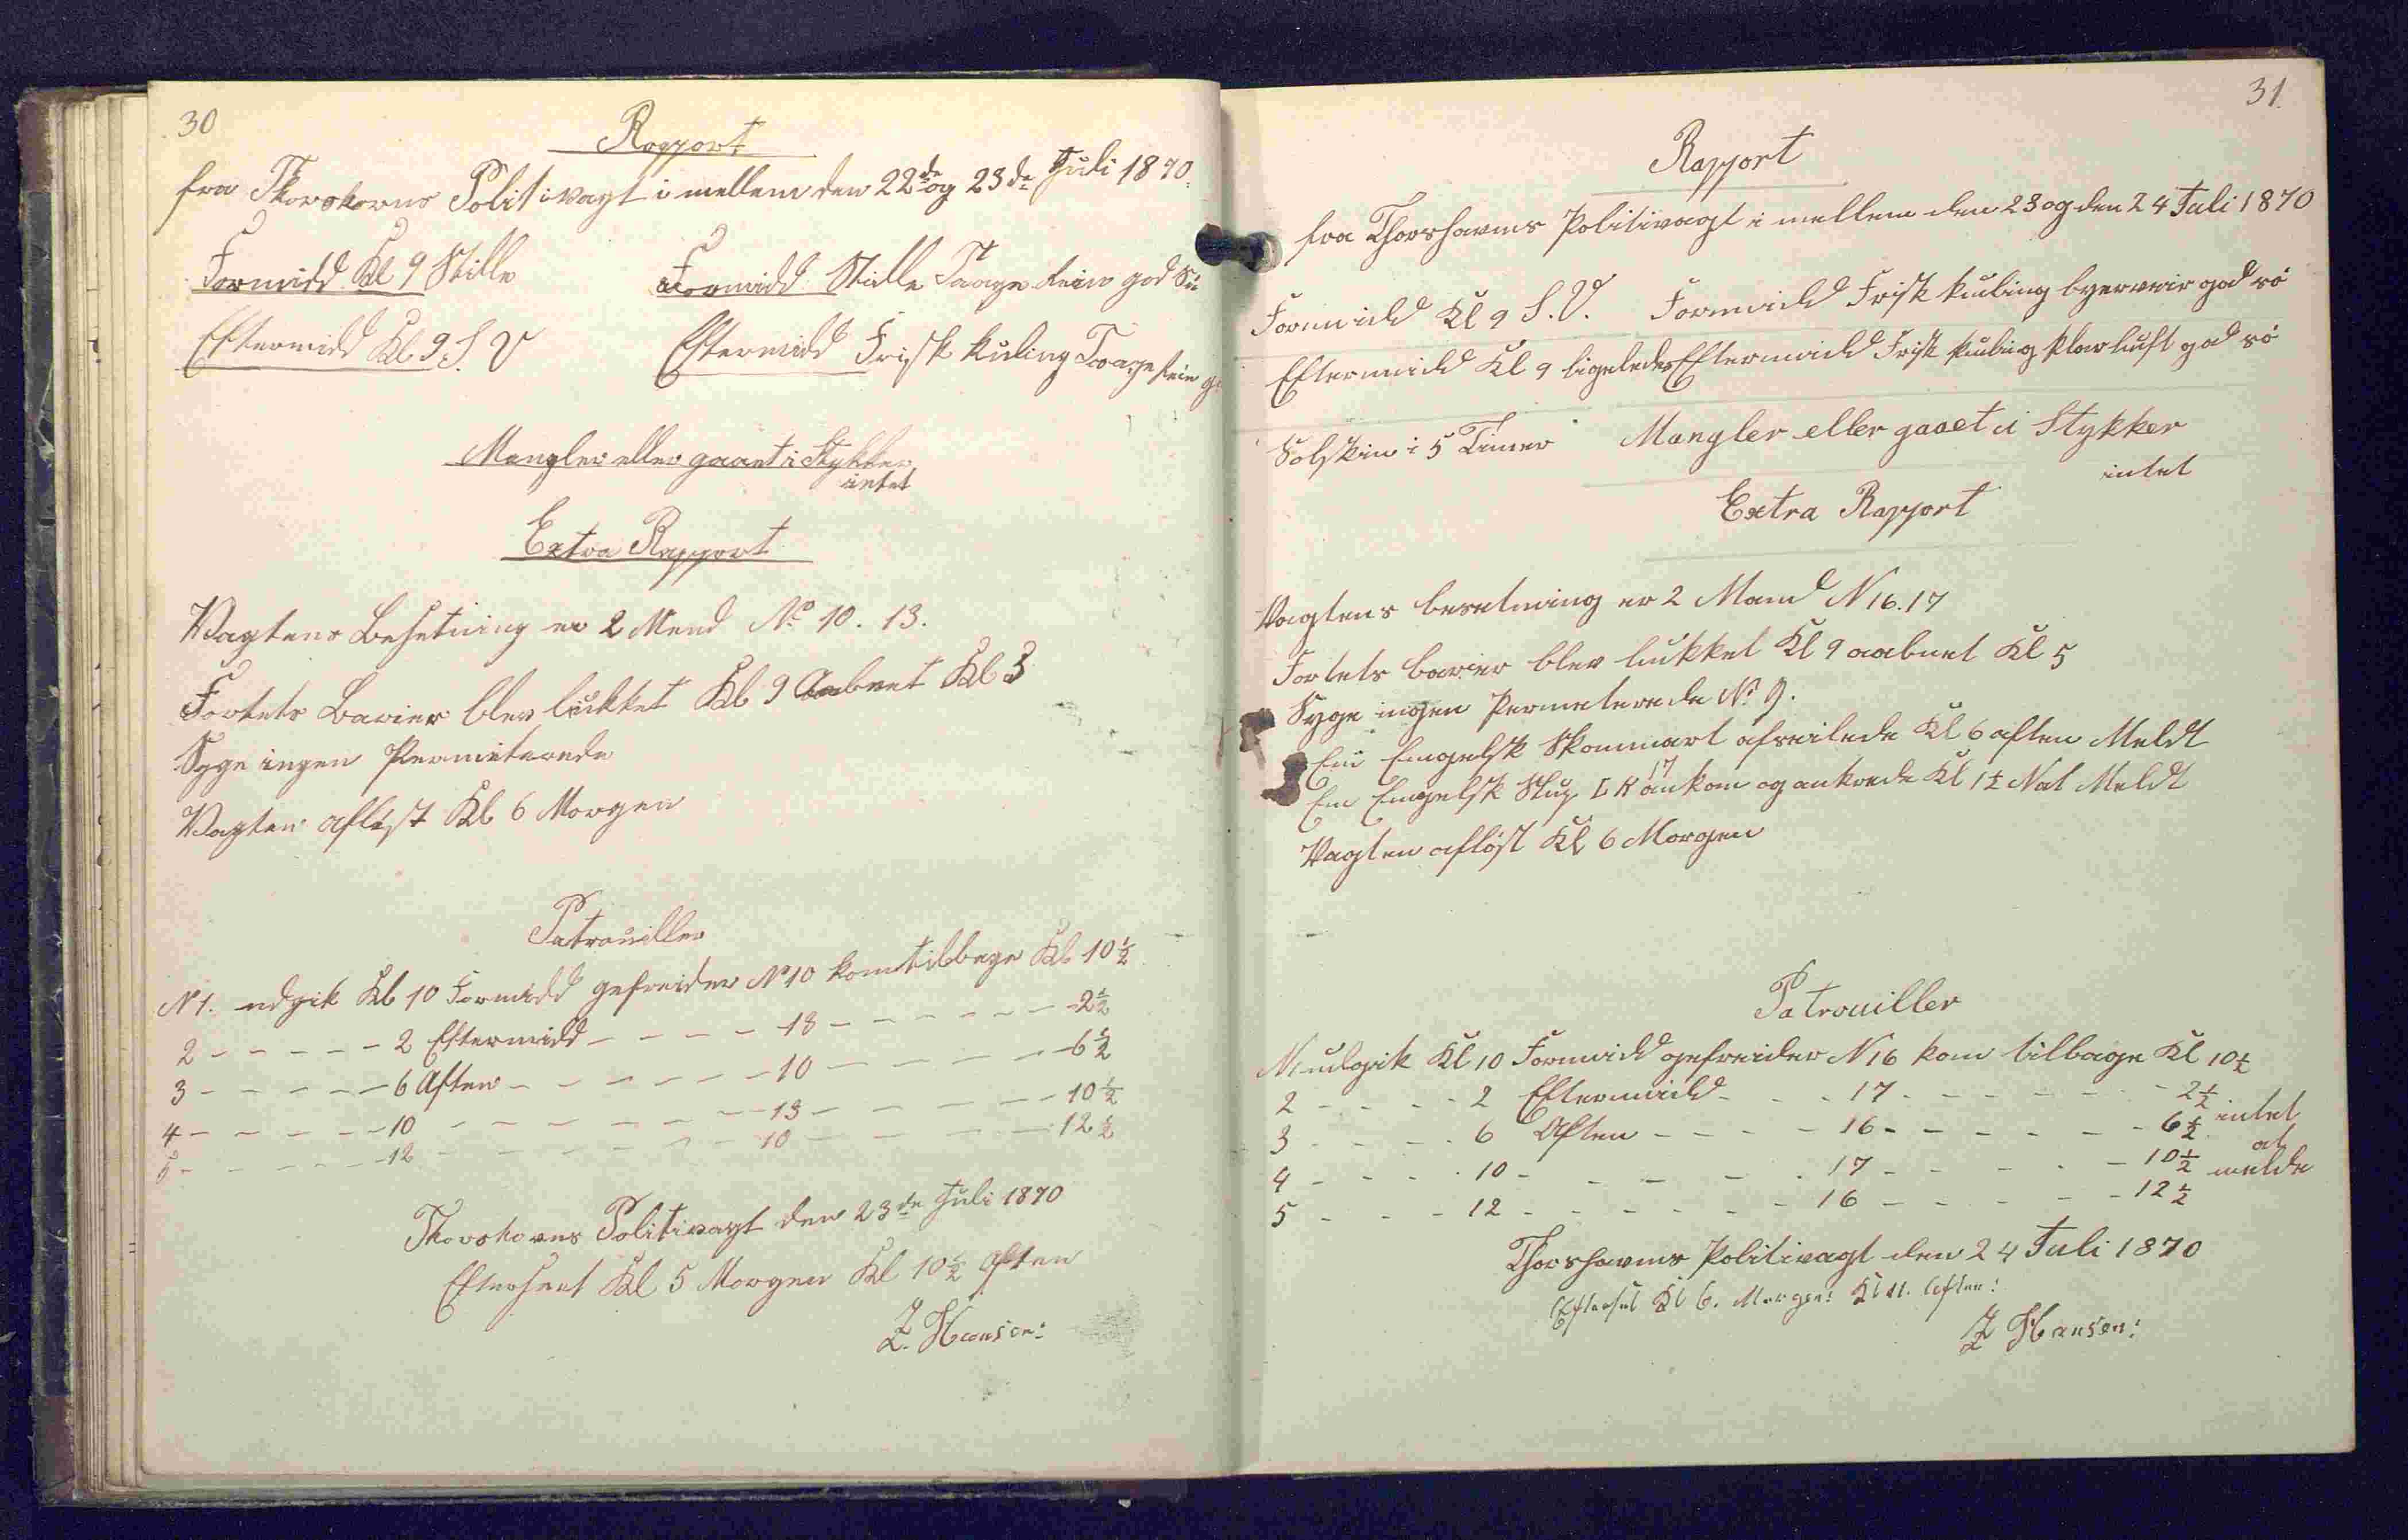 30
Rapport
fra Thorshavns Politivagt i mellem den 22de og 23de Juli 1870.
Formidd. Kl 9 Stille
Formidd Stille Taage Rein god Sö
Eftermidd Kl 9 S. V
Eftermidd Frisk Kuling Taage Rein
Mangler eller gaaet i Stykker
intet
Extra Rapport
Vagtens Besetning er 2 Mend No 10. 13.
Fortets Barier blev lukket Kl 9 Aabnet Kl 3
Syge ingen Permiterede
Vagten aflöst Kl 6 Morgen
Patrouiller
N 1. udgik Kl 10 Formidd gefreider No 10 kom tilbage Kl. 10½
2 - - - - - 2 Eftermidd - - - - 13 - - - - - - 2½
3 - - - - - 6 Aften - - - - - - 10 - - - - - 6½
4 - - - - - 10 - - - - - - - 13 - - - - - 10½
5 - - - - - 12 - - - - - - - 10 - - - - - 12½
Thorshavns Politivagt den 23de Juli 1870
Efterseet Kl 5 Morgen Kl 10½ Aften
Z. Hansen:
31.
Rapport
fra Thorshavns Politivagt i mellem den 23 og den 24 Juli 1870
Formidd Kl 9 S. V. Formidd Frisk kuling byerveir god sö
Eftermidd Kl 9 ligeledes Eftermidd Frisk kuling klar luft god sö
Solskin i 5 Timer Mangler eller gaaet i Stykker
intet
Extra Rapport
Vagtens besetning er 2 Mand N 16. 17
Fortets barier blev lukket Kl 9 aabnet Kl 5
Syge ingen Permeterede No 9.
Ein Engelsk Skonnart afseilede Kl 6 aften Meldt
Em Engelsk Slup L K 17 ankom og ankrede Kl 1½ Nat Meldt
Vagten aflöst Kl 6 Morgen
Patrouiller
N 1 udgik Kl 10 Formidd gefreider N 16 kom tilbage Kl 10½
2 - - - - 2 Eftermidd - - - 17 - - - - - - 2½ intet
3 - - - - 6 Aften - - - - 16 - - - - - - 6½ at
4 - - - - 10 - - - - - 17 - - - - - 10½ melde
5 - - - - 12 - - - - - - 16 - - - - - 12½
Thorshavns Politivagt den 24 Juli 1870
Efterset Kl 6. Morgen: Kl 11. Aften:
Z Hansen: